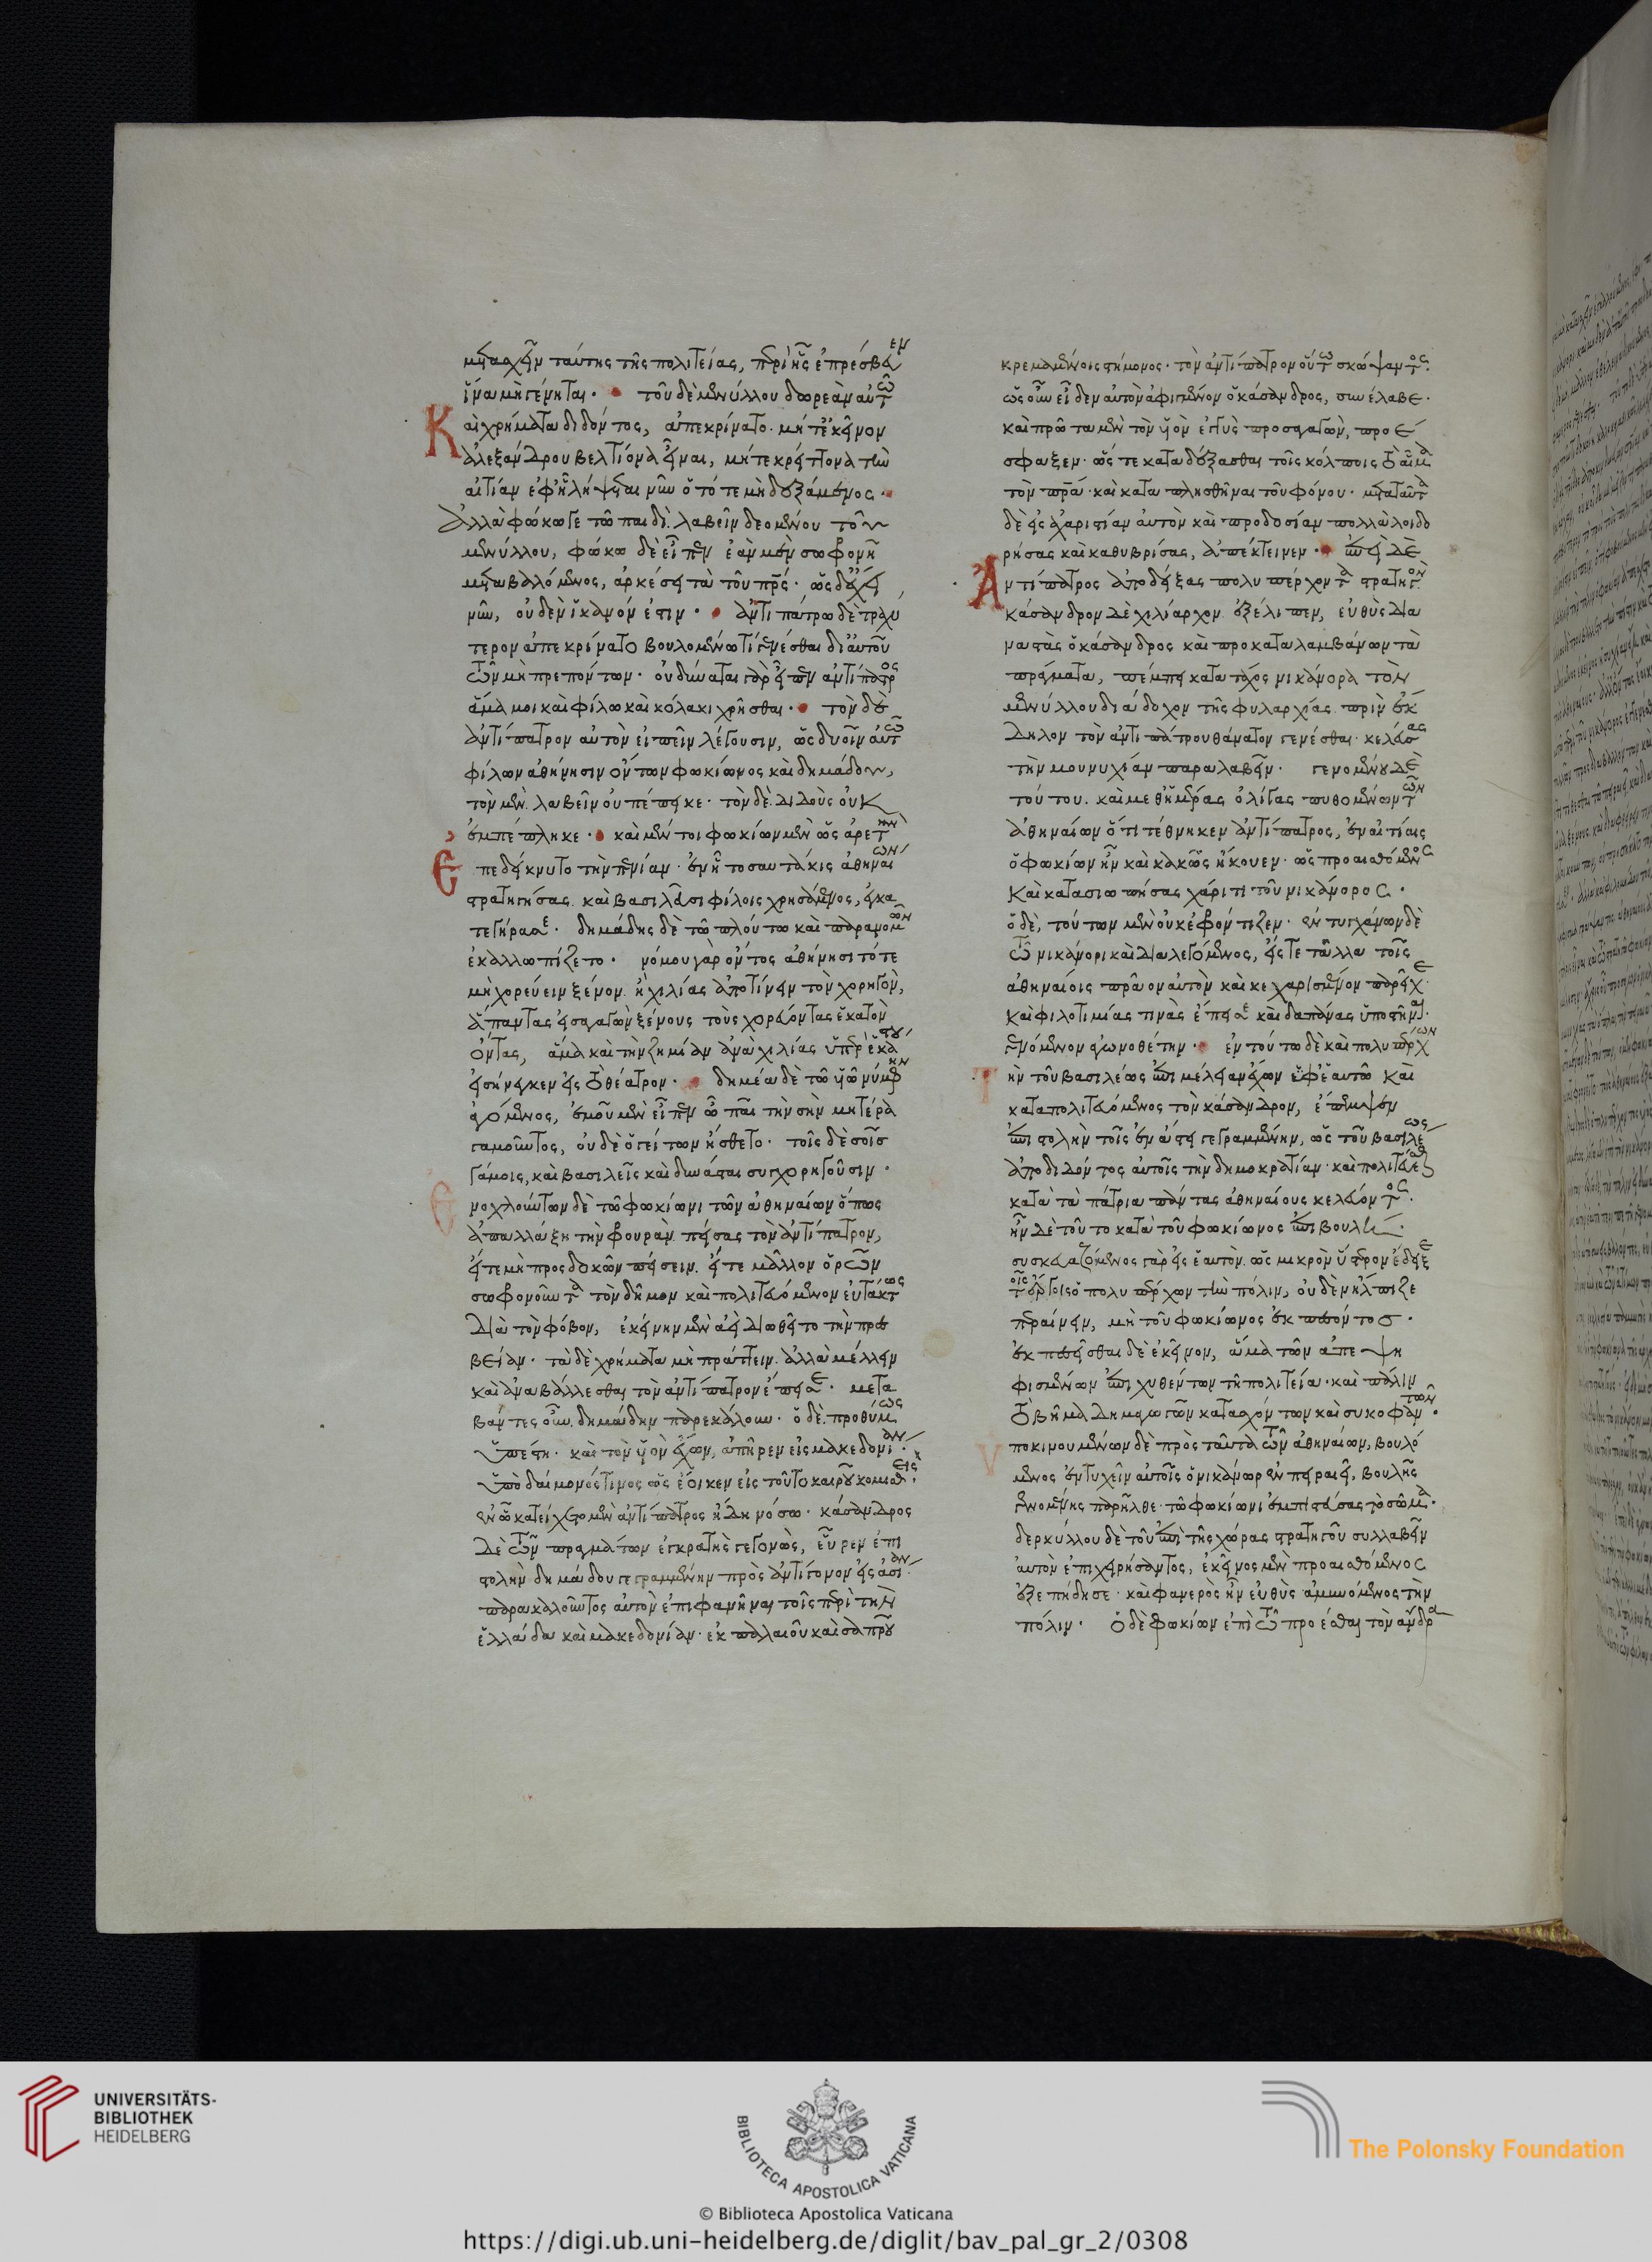 μετασχεῖν ταύτης τῆς πολιτείας, περὶ ἧς ἐπρέσβευεν
ἵνα μὴ γένηται· τοῦ δὲ μενύλλου δωρεὰν αὐτῶ
καὶ χρήματα διδόντος, ἀπεκρίνατο· μήτ' ἐκεῖνον
ἀλεξάνδρου βελτίονα εἶναι, μήτε κρείττονα τὴν
αἰτίαν ἐφ' ἧ λήψεται νῦν ὁ τότε μὴ δεξάμενος·
ἀλλὰ φώκω γε τῶ παιδὶ λαβεῖν δεομένου τοῦ
μενύλλου, φώκω δὲ εἶπεν ἐὰν μὲν σωφρονῆ
μεταβαλόμενος, ἀρκέσει τὰ τοῦ πρς· ὡς δ' ἔχει
νῦν, οὐδὲν ἱκανόν ἐστιν· ἀντιπάτρω δὲ τραχύ
τερον ἀπεκρίνατο βουλομένω τὶ γενέσθαι δι' αὐτοῦ
τῶν μὴ πρεπόντων· οὐ δύναται γὰρ εἶπεν ἀντίπατρος
ἅμα μοι καὶ φίλω καὶ κόλακι χρῆσθαι· τὸν δὲ
ἀντίπατρον αὐτὸν εἰπεῖν λέγουσιν, ὡς δυοῖν αὐτῶ
φίλων ἀθήνησιν ὄντων φωκίωνος καὶ δημάδου,
τὸν μὲν λαβεῖν οὐ πέπεικε· τὸν δὲ διδοὺς οὐκ
ἐμπέπληκε· καὶ μέντοι φωκίων μὲν ὡς ἀρετὴν
ἐπεδείκνυτο τὴν πενίαν· ἐν ἧ τοσαυτάκις ἀθηναίων
στρατηγήσας καὶ βασιλεῦσι φίλοις χρησάμενος, ἐγκα
τεγήρασε· δημάδης δὲ τῶ πλούτω καὶ παρανομῶν
ἐκαλλωπίζετο· νόμου γὰρ ὄντος ἀθήνησι τότε
μὴ χορεύειν ξένον ἢ χιλίας ἀποτίνειν τὸν χορηγὸν,
ἅπαντας εἰσαγαγὼν ξένους τοὺς χορεύοντας ἑκατὸν
ὄντας, ἅμα καὶ τὴν ζημίαν ἀνὰ χιλίας ὑπὲρ ἑκάστου
εἰσήνεγκεν εἰς τὸ θέατρον· δημέα δὲ τῶ υἱῶ νύμφην
ἀγόμενος, ἐμοῦ μὲν εἶπεν ὦ παῖ τὴν σὴν μητέρα
γαμοῦντος, οὐδὲ ὁ γείτων ἤσθετο· τοῖς δὲ σοῖς
γάμοις, καὶ βασιλεῖς καὶ δυνάσται συγχορηγοῦσιν·
ἐνοχλούντων δὲ τῶ φωκίωνι τῶν ἀθηναίων ὅπως
ἀπαλλάξη τὴν φρουρὰν πείσας τὸν ἀντίπατρον,
εἴτε μὴ προσδοκῶν πείσειν εἴτε μᾶλλον ὁρῶν
σωφρονοῦντα τὸν δῆμον καὶ πολιτευόμενον εὐτάκτως
διὰ τὸν φόβον, ἐκείνην μὲν ἀεὶ διωθεῖτο τὴν πρεσ
βείαν· τὰ δὲ χρήματα μὴ πράττειν ἀλλὰ μέλλειν
καὶ ἀναβάλλεσθαι τὸν ἀντίπατρον ἔπεισε· μετα
βάντες οὖν δημάδην παρεκάλουν· ὁ δὲ προθύμως
ὑπέστη· καὶ τὸν υἱὸν ἔχων, ἀπῆρεν εἰς μακεδονίαν·
ὑπὸ δαίμονός τινος ὡς ἔοικεν εἰς τοῦτο καιροῦ κομισθείς·
ἐν ὧ κατείχετο μὲν ἀντίπατρος ἤδη νόσω· κάσανδρος
δὲ τῶν πραγμάτων ἐγκρατὴς γεγονὼς, εὗρεν ἐπι
στολὴν δημάδου γεγραμμένην πρὸς ἀντίγονον εἰς ἀσίαν·
παρακαλοῦντος αὐτὸν ἐπιφανῆναι τοῖς περὶ τὴν
ἑλλάδα καὶ μακεδονίαν· ἐκ παλαιοῦ καὶ σαπροῦ
κρεμαμένοις στήμονος· τὸν ἀντίπατρον οὕτω σκώψαντος·
ὡς οὖν εἶδεν αὐτὸν ἀφιγμένον ὁ κάσανδρος, συνέλαβε·
καὶ πρῶτα μὲν τὸν υἱὸν ἐγγὺς προσαγαγὼν, προσέ
σφαξεν· ὥστε καταδέξασθαι τοῖς κόλποις τὸ αἷμα
τὸν πρα· καὶ καταπλησθῆναι τοῦ φόνου· μετὰ ταῦτα
δὲ εἰς ἀχαριστίαν αὐτὸν καὶ προδοσίαν πολλὰ λοιδο
ρήσας καὶ καθυβρίσας, ἀπέκτεινεν· ἐπεὶ δὲ
ἀντίπατρος ἀποδείξας πολυπέρχοντα στρατηγὸν
κάσανδρον δὲ χιλίαρχον ἐξέλιπεν, εὐθὺς δια
ναστὰς ὁ κάσανδρος καὶ προκαταλαμβάνων τὰ
πράγματα, πέμπει κατὰ τάχος νικάνορα τὸν
μενύλλου διάδοχον τῆς φυλαρχίας πρὶν ἔκ
δηλον τὸν ἀντιπάτρου θάνατον γενέσθαι κελεύσας
τὴν μουνυχίαν παραλαβεῖν· γενομένου δὲ
τούτου καὶ μεθ' ἡμέρας ὀλίγας πυθομένων τῶν
ἀθηναίων ὅτι τέθνηκεν ἀντίπατρος, ἐν αἰτίαις
ὁ φωκίων ἦν καὶ κακῶς ἤκουεν· ὡς προαισθόμενος
καὶ κατασιωπήσας χάριτι τοῦ νικάνορος·
ὁ δὲ, τούτων μὲν οὐκ ἐφρόντιζεν· ἐντυγχάνων δὲ
τῶ νικάνορι καὶ διαλεγόμενος, εἴς τε τἄλλα τοῖς
ἀθηναίοις πρᾶον αὐτὸν καὶ κεχαρισμένον παρεῖχε
καὶ φιλοτιμίας τινὰς ἔπεισε καὶ δαπάνας ὑποστῆναι·
γενόμενον ἀγωνοθέτην· ἐν τούτω δὲ καὶ πολυπέρχων
τὴν τοῦ βασιλέως ἐπιμέλειαν ἔχων ἐφ' ἑαυτῶ καὶ
καταπολιτευόμενος τὸν κάσανδρον, ἔπεμψεν
ἐπιστολὴν τοῖς ἐν ἄστει γεγραμμένην, ὡς τοῦ βασιλέως
ἀποδιδόντος αὐτοῖς τὴν δημοκρατίαν· καὶ πολιτεύεσθαι
κατὰ τὰ πάτρια πάντας ἀθηναίους κελεύοντος·
ἦν δὲ τοῦτο κατὰ τοῦ φωκίωνος ἐπιβουλή·
συσκευαζόμενος γὰρ εἰς ἑαυτὸν ὡς μικρὸν ὕστερον ἔδειξε
τοῖς ἔργοις ὁ πολυπέρχων τὴν πόλιν, οὐδὲν ἤλπιζε
περαίνειν, μὴ τοῦ φωκίωνος ἐκπεσόντος·
ἐκπεσεῖσθαι δὲ ἐκεῖνον, ἅμα τῶν ἀπεψη
φισμένων ἐπιχυθέντων τῆ πολιτεία· καὶ πάλιν
τὸ βῆμα δημαγωγῶν κατασχόντων καὶ συκοφαντῶν·
ὑποκινουμένων δὲ πρὸς ταῦτα τῶν ἀθηναίων, βουλό
μενος ἐντυχεῖν αὐτοῖς ὁ νικάνωρ ἐν πειραιεῖ, βουλῆς
γενομένης παρῆλθε· τῶ φωκίωνι ἐμπιστεύσας τὸ σῶμα·
δερκύλλου δὲ τοῦ ἐπὶ τῆς χώρας στρατηγοῦ συλλαβεῖν
αὐτὸν ἐπιχειρήσαντος, ἐκεῖνος μὲν προαισθόμενος
ἐξεπήδησε· καὶ φανερὸς ἦν εὐθὺς ἀμυνούμενος τὴν
πόλιν· ὁ δὲ φωκίων ἐπὶ τῶ προέσθαι τὸν ἄνδρα
UNIVERSITÄTS-
BIBLIOTHEK
HEIDELBERG
BIBLIOTECA APOSTOLICA VATICANA
© Biblioteca Apostolica Vaticana
The Polonsky Foundation
https://digi.ub.uni-heidelberg.de/diglit/bav_pal_gr_2/0308